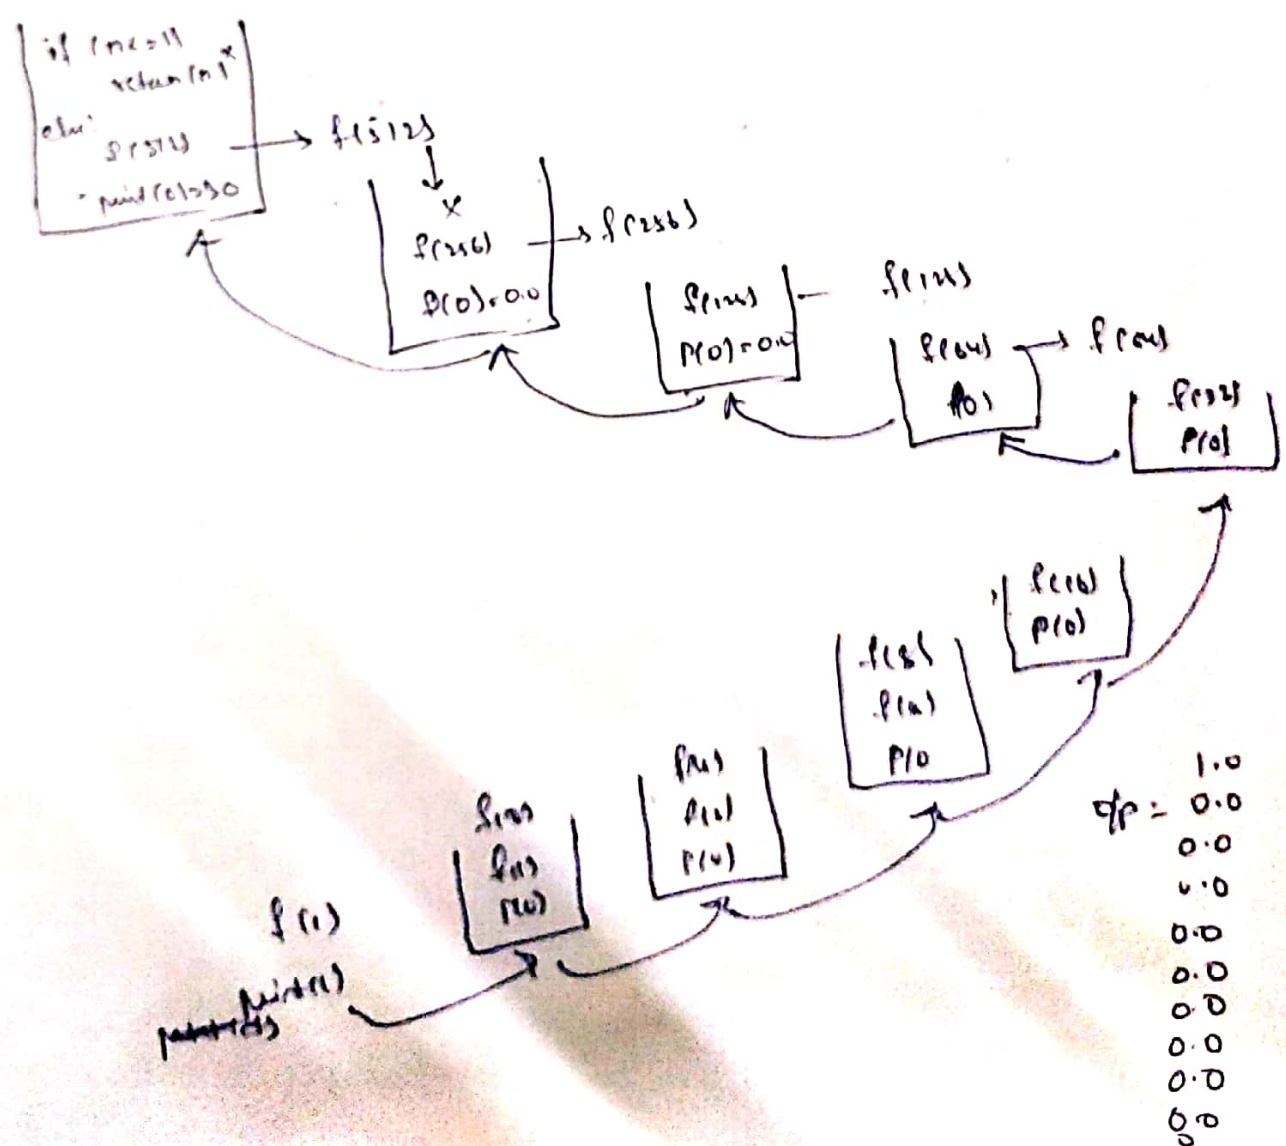 if (n<=1)
return(n) x
else:
f(512)
print(0)=>0
f(512)
x
f(256)
P(0)=0.0
f(256)
f(128)
P(0)=0.0
f(128)
f(64)
P(0)
f(64)
f(32)
P(0)
f(16)
P(0)
f(8)
f(4)
P(0
f(4)
f(2)
P(0)
f(2)
f(1)
P(0)
f(1)
print(1)
1.0
o/p = 0.0
0.0
0.0
0.0
0.0
0.0
0.0
0.0
0.0